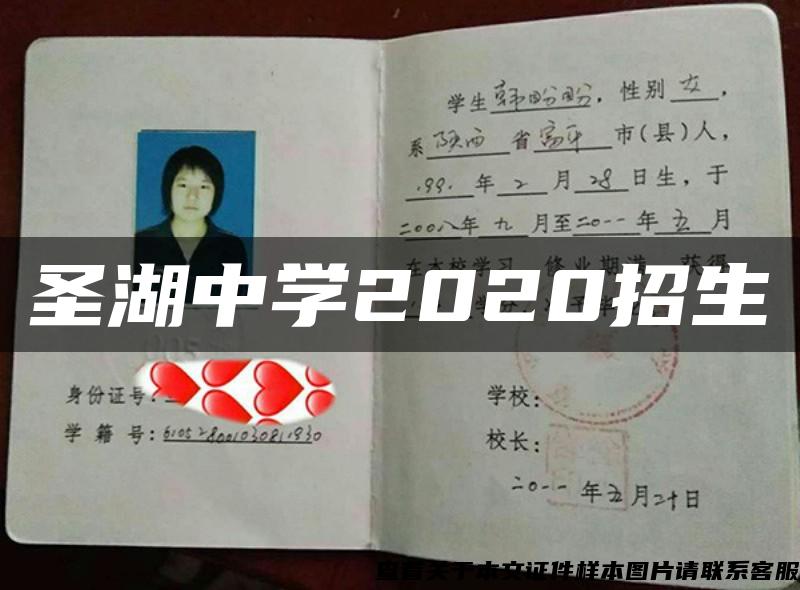 学生韩盼盼，性别女，
系陕西省富平市(县)人，
1991年2月28日生，于
二00八年九月至二0一一年五月
在本校学习 修业期满 获得
圣湖中学2020招生
身份证号：
学籍号：610528001030811930
学校：
校长：
二0一一年五月二十日
查看关于本文证件样本图片请联系客服